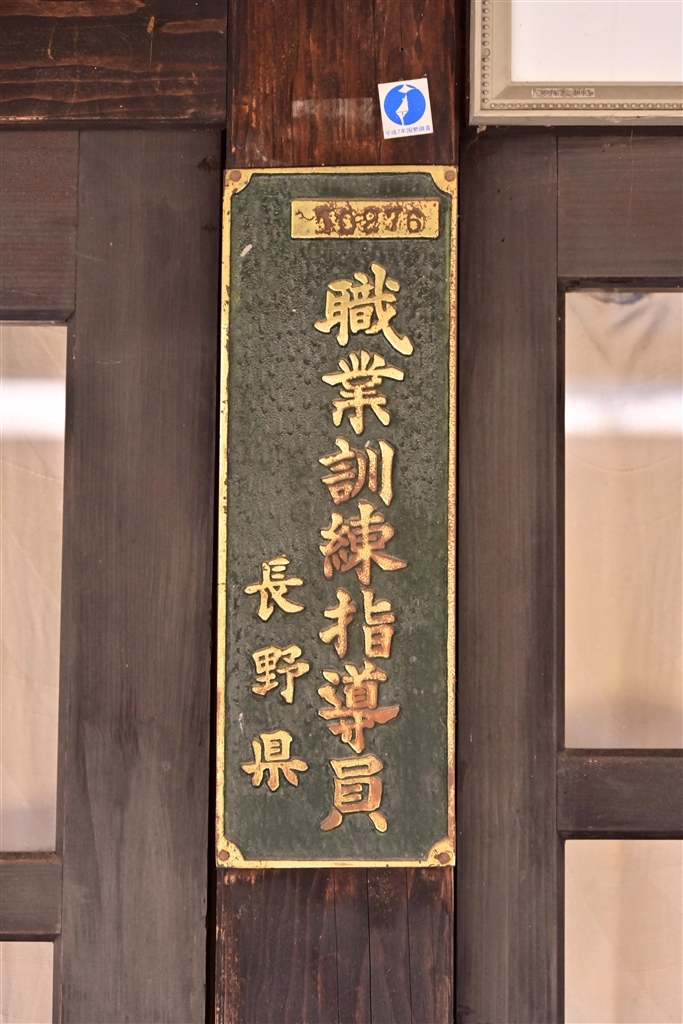 職業訓練指導員
長野県
平成7年国勢調査